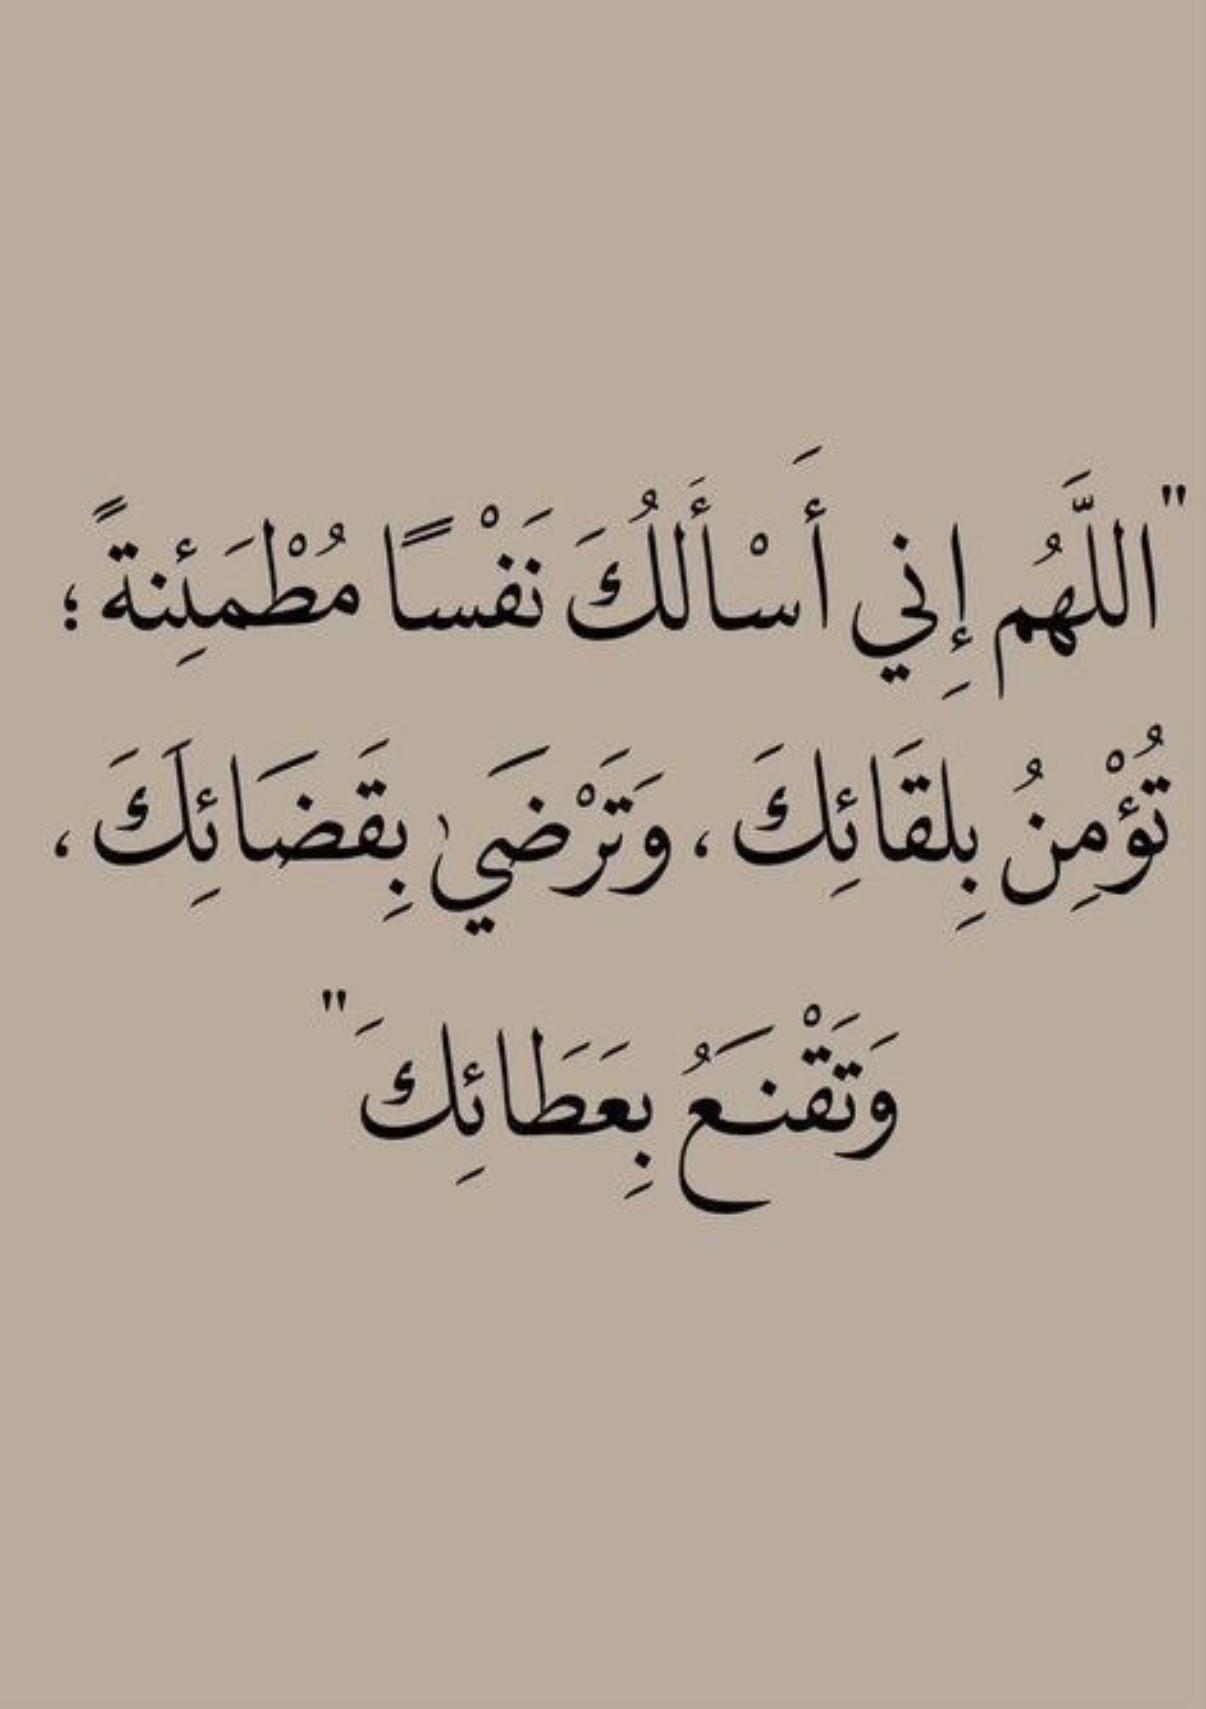 "اللَّهُم إِني أَسْأَلُكَ نَفْسًا مُطْمَئِنةً ؛
تُؤْمِنُ بِلقَائِكَ ، وَتَرْضَيٰ بِقَضَائِكَ ،
وَتَقْنَعُ بِعَطَائِكَ "